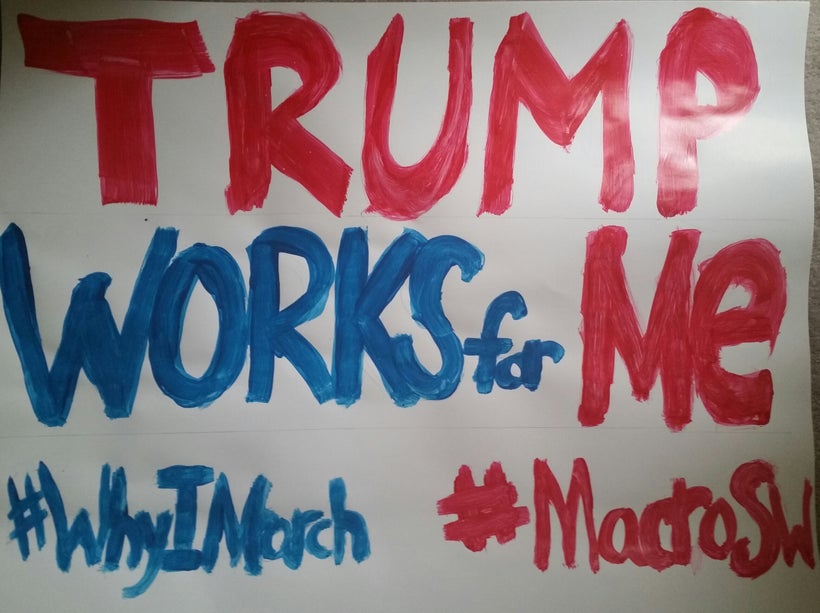 TRUMP
WORKS for Me
#WhyIMarch #MacroSW